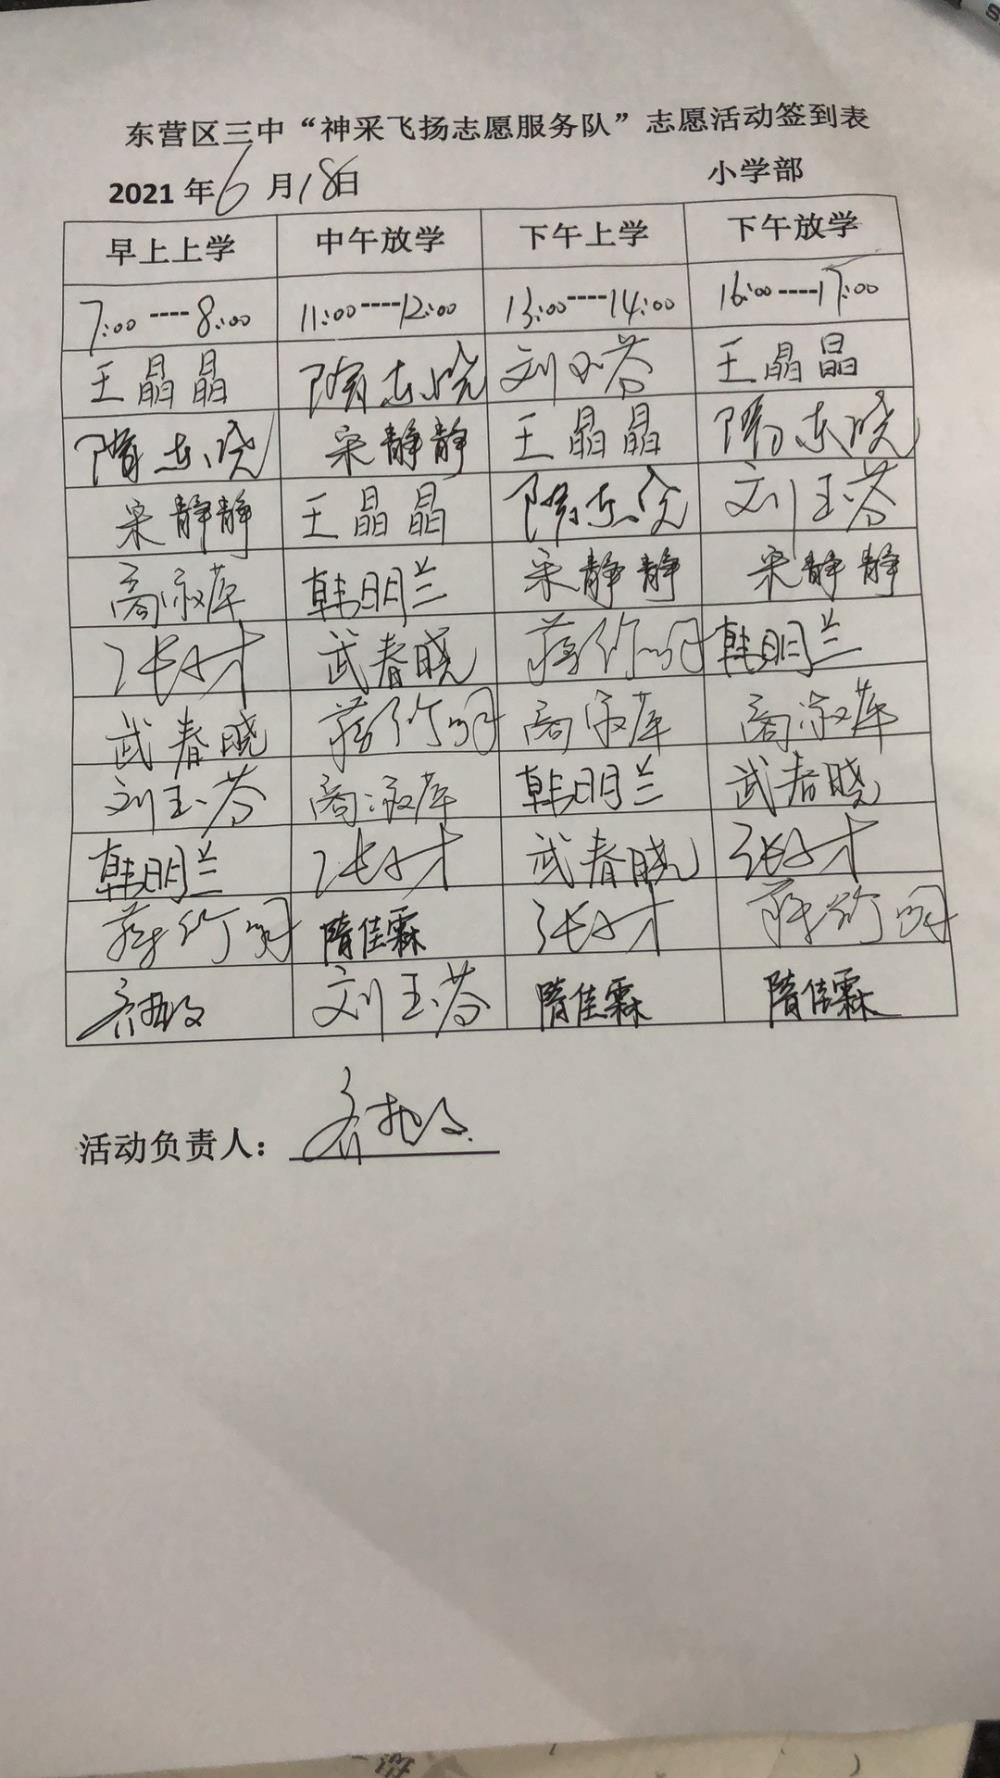 东营区三中“神采飞扬志愿服务队”志愿活动签到表
2021年6月18日 小学部
早上上学 中午放学 下午上学 下午放学
7:00----8:00 11:00----12:00 13:00----14:00 16:00----17:00
王晶晶 隋志晓 刘玉芬 王晶晶
隋志晓 宋静静 王晶晶 隋志晓
宋静静 王晶晶 隋志晓 刘玉芬
商淑萍 韩明兰 宋静静 宋静静
张才 武春晓 蒋竹明 韩明兰
武春晓 蒋竹明 商淑萍 商淑萍
刘玉芬 商淑萍 韩明兰 武春晓
韩明兰 张才 武春晓 张才
蒋竹明 隋佳霖 张才 蒋竹明
刘玉芬 隋佳霖 隋佳霖
活动负责人：